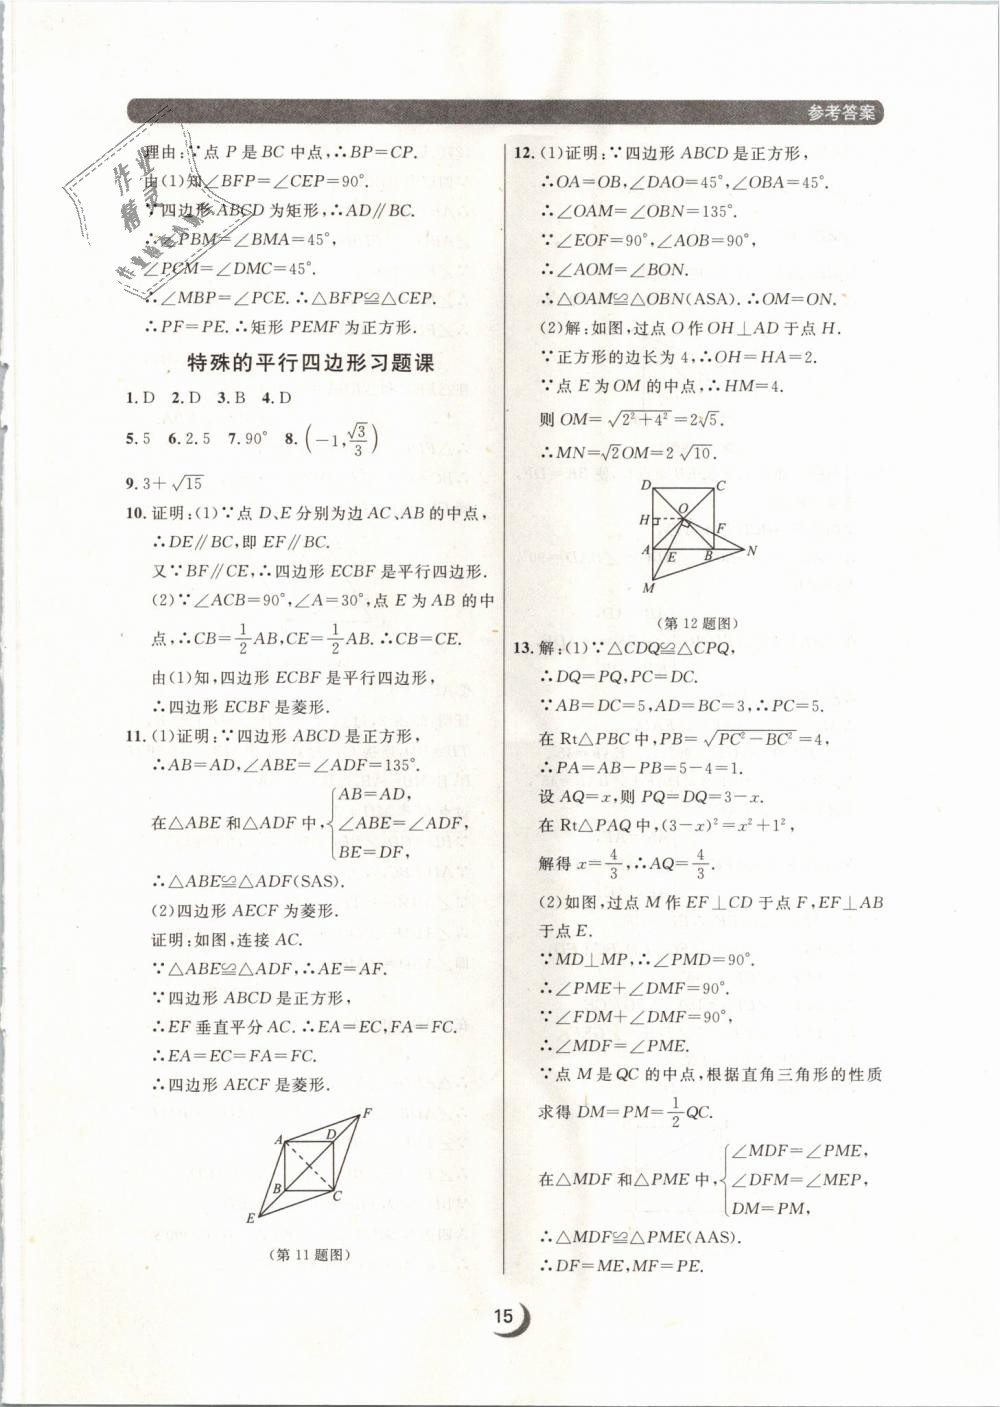 参考答案
理由:∵点 P 是 BC 中点,∴BP=CP.
由(1)知∠BFP=∠CEP=90°.
∵四边形 ABCD 为矩形,∴AD∥BC.
∴∠PBM=∠BMA=45°,
∠PCM=∠DMC=45°.
∴∠MBP=∠PCE.∴△BFP≌△CEP.
∴PF=PE.∴矩形 PEMF 为正方形.
特殊的平行四边形习题课
1.D 2.D 3.B 4.D
5.5 6.2.5 7.90° 8.(-1,√3/3)
9.3+√15
10.证明:(1)∵点 D、E 分别为边 AC、AB 的中点,
∴DE∥BC,即 EF∥BC.
又∵BF∥CE,∴四边形 ECBF 是平行四边形.
(2)∵∠ACB=90°,∠A=30°,点 E 为 AB 的中
点,∴CB=1/2AB,CE=1/2AB.∴CB=CE.
由(1)知,四边形 ECBF 是平行四边形,
∴四边形 ECBF 是菱形.
11.(1)证明:∵四边形 ABCD 是正方形,
∴AB=AD,∠ABE=∠ADF=135°.
在△ABE 和△ADF 中,{AB=AD,
∠ABE=∠ADF,
BE=DF,
∴△ABE≌△ADF(SAS).
(2)四边形 AECF 为菱形.
证明:如图,连接 AC.
∵△ABE≌△ADF,∴AE=AF.
∵四边形 ABCD 是正方形,
∴EF 垂直平分 AC.∴EA=EC,FA=FC.
∴EA=EC=FA=FC.
∴四边形 AECF 是菱形.
F
A D
B C
E
(第 11 题图)
12.(1)证明:∵四边形 ABCD 是正方形,
∴OA=OB,∠DAO=45°,∠OBA=45°.
∴∠OAM=∠OBN=135°.
∵∠EOF=90°,∠AOB=90°,
∴∠AOM=∠BON.
∴△OAM≌△OBN(ASA).∴OM=ON.
(2)解:如图,过点 O 作 OH⊥AD 于点 H.
∵正方形的边长为 4,∴OH=HA=2.
∵点 E 为 OM 的中点,∴HM=4.
则 OM=√(2²+4²)=2√5.
∴MN=√2OM=2√10.
D C
O
H F
A E B N
M
(第 12 题图)
13.解:(1)∵△CDQ≌△CPQ,
∴DQ=PQ,PC=DC.
∵AB=DC=5,AD=BC=3,∴PC=5.
在 Rt△PBC 中,PB=√(PC²-BC²)=4,
∴PA=AB-PB=5-4=1.
设 AQ=x,则 PQ=DQ=3-x.
在 Rt△PAQ 中,(3-x)²=x²+1²,
解得 x=4/3,∴AQ=4/3.
(2)如图,过点 M 作 EF⊥CD 于点 F,EF⊥AB
于点 E.
∵MD⊥MP,∴∠PMD=90°.
∴∠PME+∠DMF=90°.
∵∠FDM+∠DMF=90°,
∴∠MDF=∠PME.
∵点 M 是 QC 的中点,根据直角三角形的性质
求得 DM=PM=1/2QC.
在△MDF 和△PME 中,{∠MDF=∠PME,
∠DFM=∠MEP,
DM=PM,
∴△MDF≌△PME(AAS).
∴DF=ME,MF=PE.
15
作业
精灵